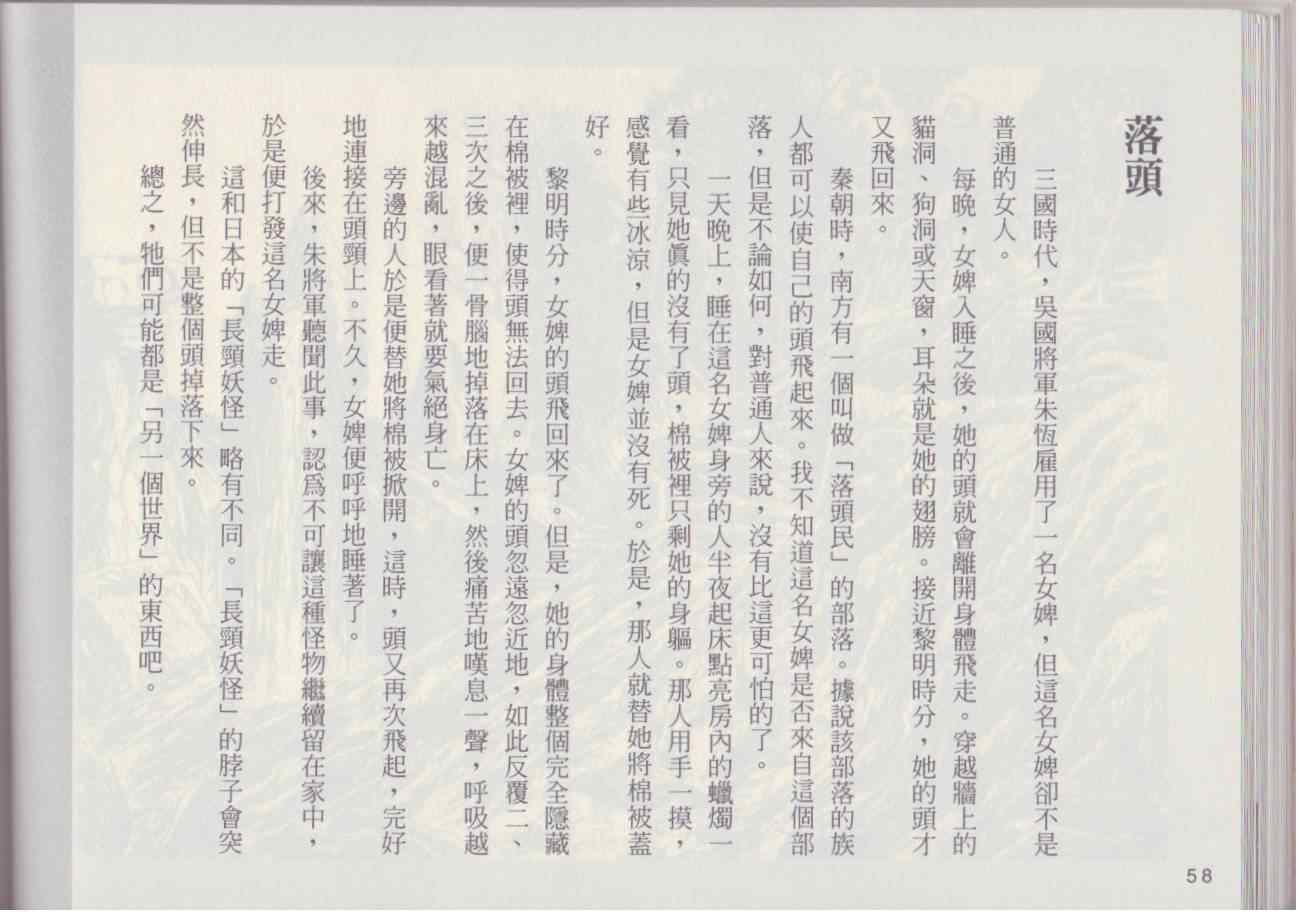 落頭
三國時代，吳國將軍朱恆雇用了一名女婢，但這名女婢卻不是
普通的女人。
每晚，女婢入睡之後，她的頭就會離開身體飛走。穿越牆上的
貓洞、狗洞或天窗，耳朵就是她的翅膀。接近黎明時分，她的頭才
又飛回來。
秦朝時，南方有一個叫做「落頭民」的部落。據說該部落的族
人都可以使自己的頭飛起來。我不知道這名女婢是否來自這個部
落，但是不論如何，對普通人來說，沒有比這更可怕的了。
一天晚上，睡在這名女婢身旁的人半夜起床點亮房內的蠟燭一
看，只見她眞的沒有了頭，棉被裡只剩她的身軀。那人用手一摸，
感覺有些冰涼，但是女婢並沒有死。於是，那人就替她將棉被蓋
好。
黎明時分，女婢的頭飛回來了。但是，她的身體整個完全隱藏
在棉被裡，使得頭無法回去。女婢的頭忽遠忽近地，如此反覆二、
三次之後，便一骨腦地掉落在床上，然後痛苦地嘆息一聲，呼吸越
來越混亂，眼看著就要氣絕身亡。
旁邊的人於是便替她將棉被掀開，這時，頭又再次飛起，完好
地連接在頭頸上。不久，女婢便呼呼地睡著了。
後來，朱將軍聽聞此事，認爲不可讓這種怪物繼續留在家中，
於是便打發這名女婢走。
這和日本的「長頸妖怪」略有不同。「長頸妖怪」的脖子會突
然伸長，但不是整個頭掉落下來。
總之，牠們可能都是「另一個世界」的東西吧。
58